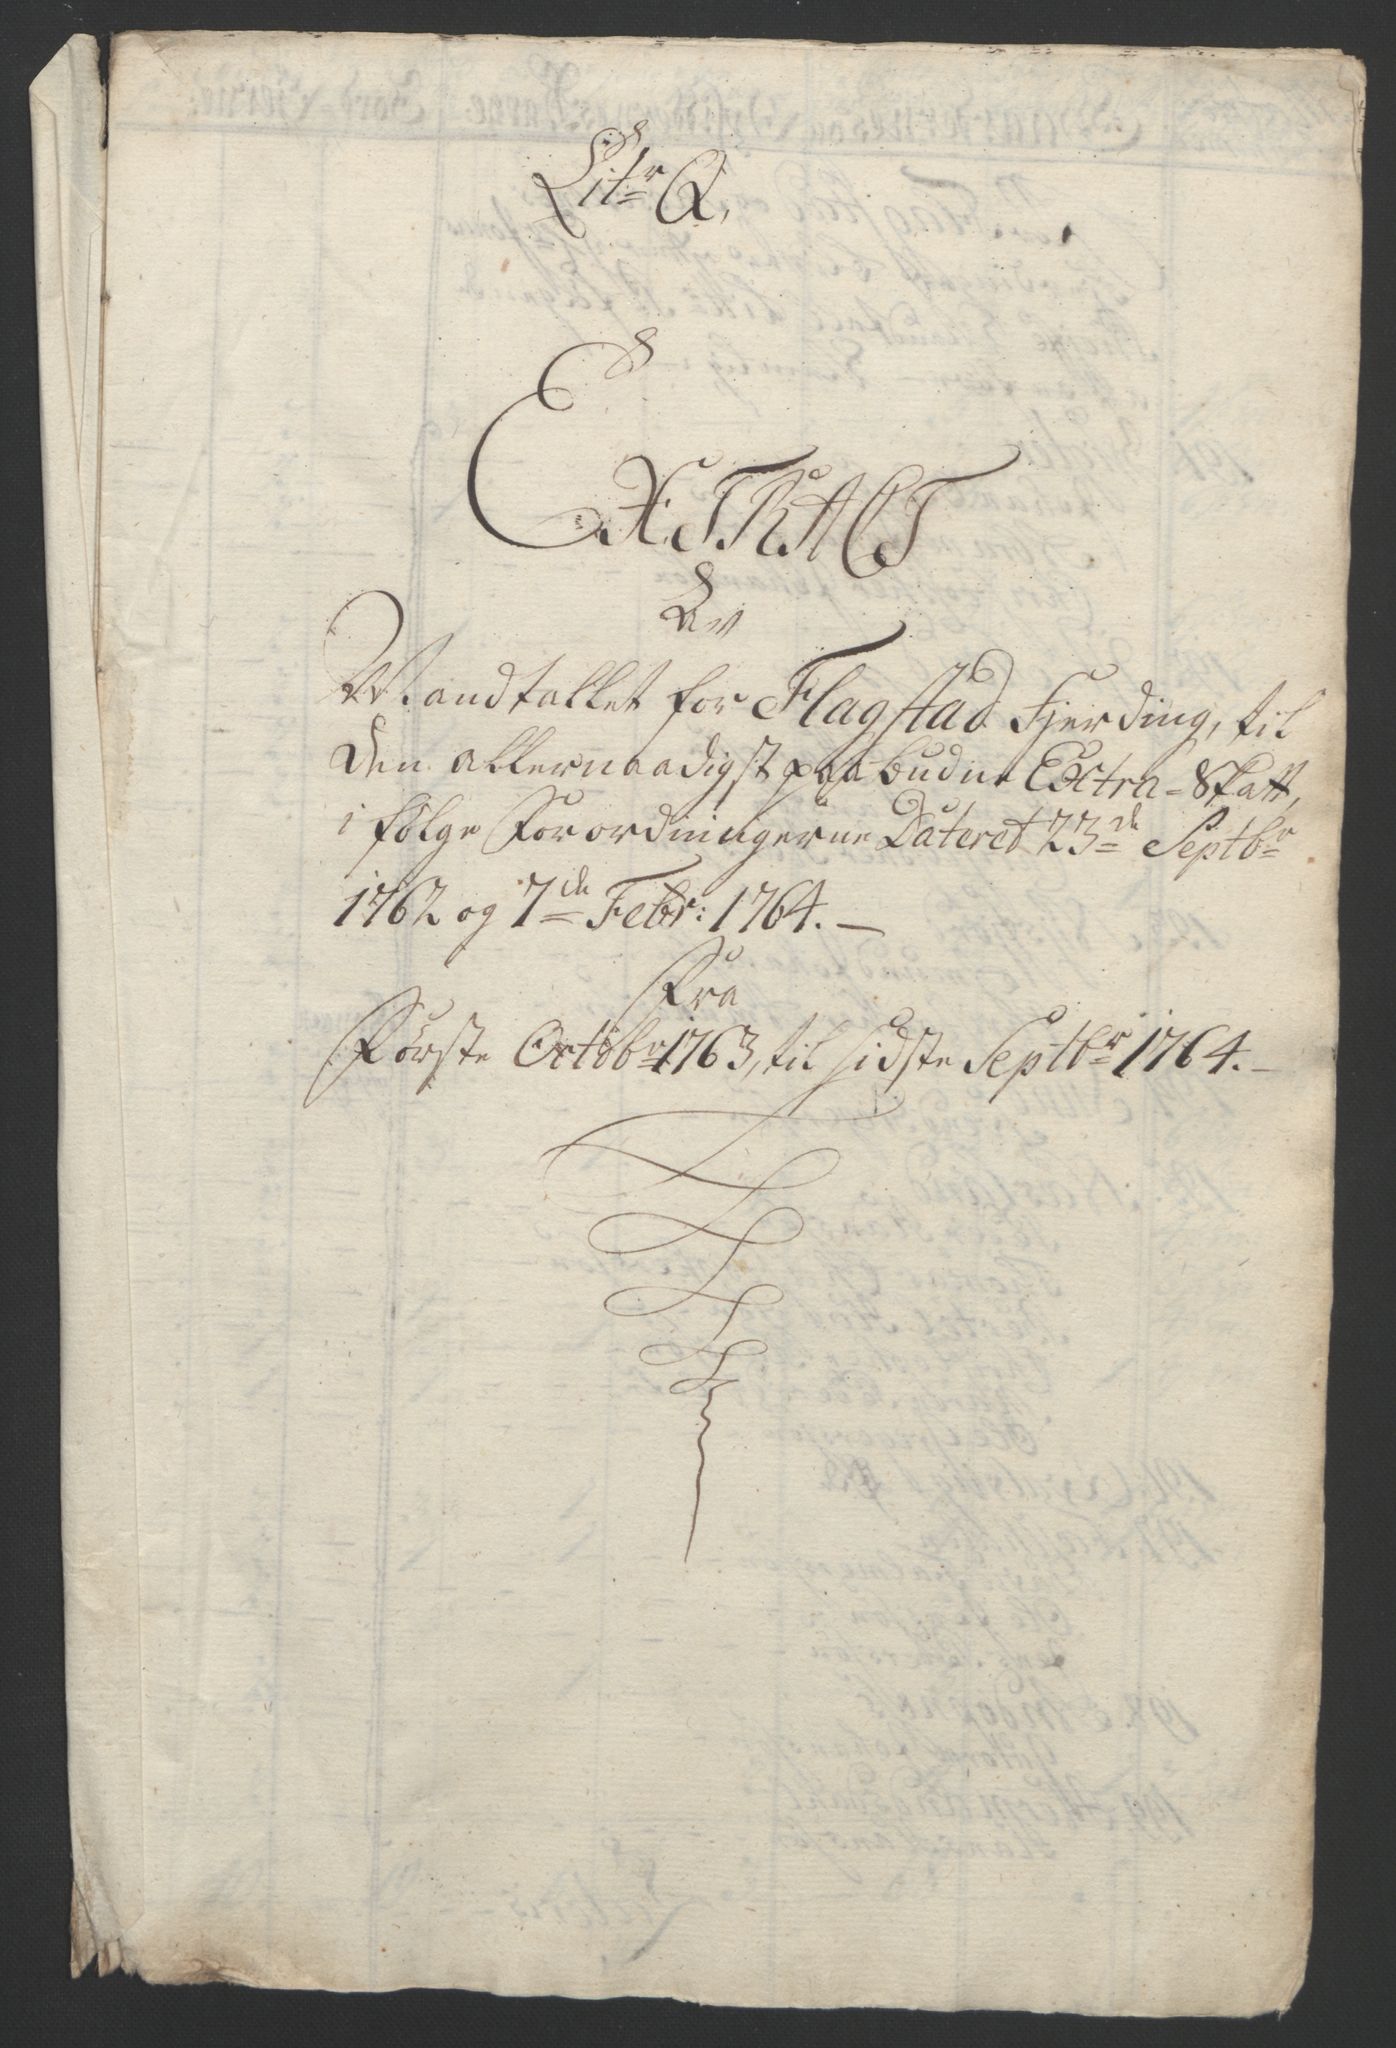 Litr Q,
EXTRACT
Av
Mandtallet for Flagstad Fjerding, til
den allernaadigst paabudne Extra-Skatt,
i følge Forordningerne Dateret 23de Septbr
1762 og 7de Febr: 1764.—
Fra
Første Octobr 1763, til sidste Septbr 1764.—